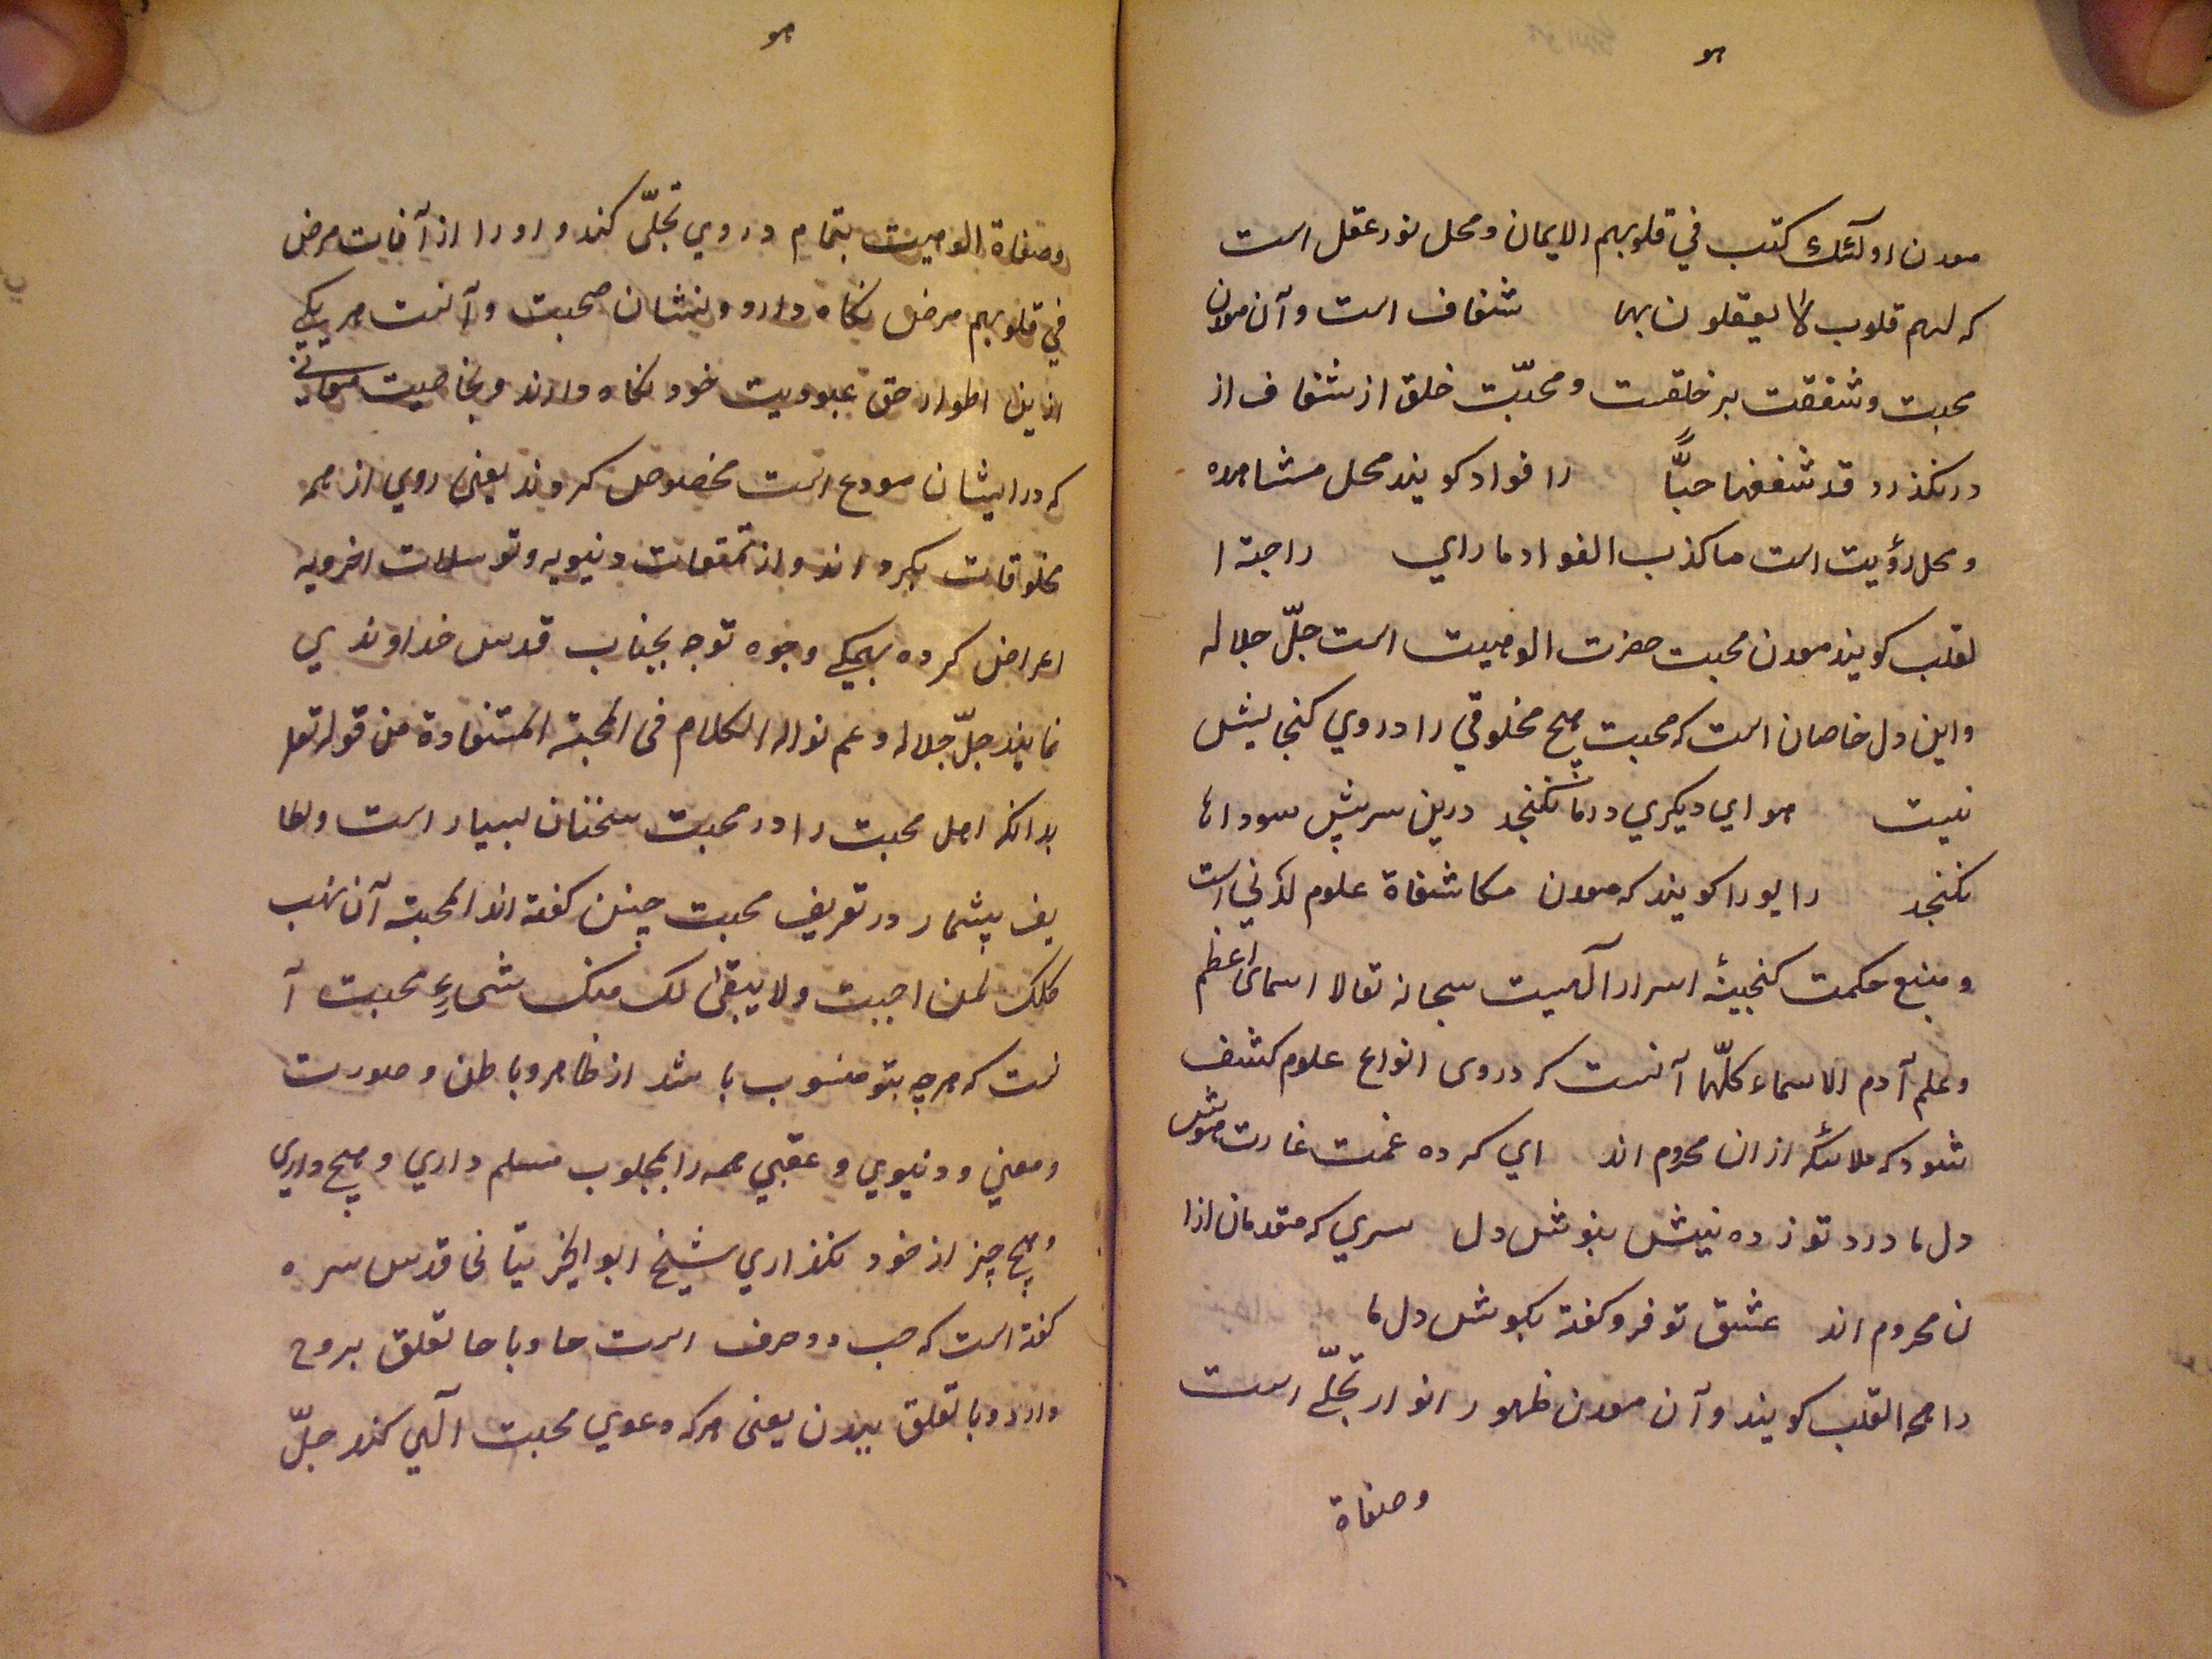 هو
معدن اولٓئك كتب في قلوبهم الايمان ومحل نور عقل است
كه لهم قلوب لا يعقلون بها شغاف است وآن معدن
محبت وشفقت بر خلقست ومحبّت خلق از شغاف از
در نكذرد قد شغفها حبًّا را فواد كويند محل مشاهده
ومحل رؤيت است ما كذب الفواد ما راي را حبة ا
لقلب كويند معدن محبت حضرت الوهيت است جلّ جلاله
واين دل خاصان است كه محبت هيچ مخلوقي را در وي كنجايش
نيست هواي ديكري در ما نكنجد درين سر بيش سودا ها
نكنجد را يورا كويند كه معدن مكاشفاة علوم لدني است
ومنبع حكمت كنجينهٔ اسرار آلهيت سبحانه تعالا اسماى اعظم
وعلم آدم الاسماء كلّها آنست كه در وى انواع علوم كشف
شود كه ملائكه از ان محروم اند اي كرده غمت غارت هوش
دل ما درد تو زده نيش بنوش دل سري كه مقدمان ازا
ن محروم اند عشق تو فرو كفته بكوش دل ما
را مهجة القلب كويند وآن معدن ظهور انوار تجلّے است
وصفاة
هو
وصفاة الوهيت بتمام در وي تجلّى كند و او را از آفات مرض
في قلوبهم مرض نكاه دارد ونشان صحبت وآنست هر يكے
ازين اطوار حق عبوديت خود نكاه دارند وبخاصيت معانے
كه در ايشان مودع است مخصوص كردند يعنى روي از همه
مخلوقات بكرد اند واز تمتعات دنيويه وتوسلات اخرويه
اعراض كرده بهمكے وجوه توجه بجناب قدس خداوندي
نمايند جلّ جلاله وعم نواله الكلام فى المحبة المستفادة من قوله تعا
بدانكه اهل محبت را در محبت سخنان بسيار است ولطا
يف بيشمار در تعريف محبت چنين كفته اند المحبة آن تهب
كلك لمن احببت ولا يبقى لك منك شىءٍ محبت آ
نست كه هر چه بتو منسوب باشد از ظاهر وباطن وصورت
ومعني ودنيوي وعقبي همه را بمحبوب مسلم داري وهيچ داري
وهيچ چيز از خود نكذاري شيخ ابو الخير تيتانى قدس سره
كفته است كه حب دو حرف است حا وبا حا تعلق بروح
دارد وبا تعلق ببدن يعنى هر كه دعوي محبت آلهي كند جلّ